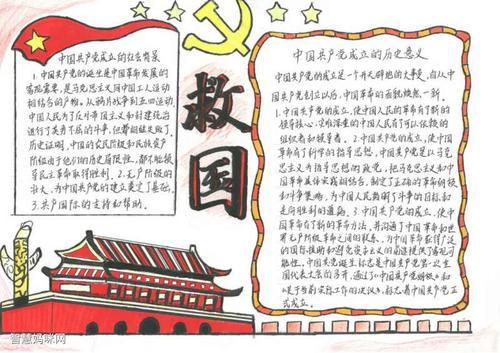 中国共产党成立的社会背景
1.中国共产党的诞生是中国革命发展的
客观需要,是马克思主义同中国工人运动
相结合的产物。从鸦片战争到五四运动,
中国人民为了反对帝国主义和封建统治
进行了英勇不屈的斗争,但都相继失败了。
历史证明,中国的农民阶级和民族资产
阶级由于他们的历史局限性,都不能领
导民主革命取得胜利。2.无产阶级的
壮大,为中国共产党的建立奠定了基础。
3.共产国际的支持和帮助。
救国
中国共产党成立的历史意义
中国共产党的成立是一个开天辟地的大事变,自从中
国共产党成立以后,中国革命的面貌焕然一新。
1.中国共产党的成立,使中国人民的革命有了新的
领导核心,灾难深重的中国人民有了可以信赖的
组织者和领导者。2.中国共产党的成立,使中国
革命有了新的指导思想,中国共产党是以马克
思主义为指导思想的政党,把马克思主义和中国
革命具体实践相结合,制定了正确的革命纲领
和斗争策略,为中国人民指明了斗争的目标和
走向胜利的道路。3.中国共产党的成立,使中国
革命有了新的革命方法,并沟通了中国革命和世
界无产阶级革命之间的联系,为中国革命获得广泛
的国际援助和避免资本主义的前途提供了客观可
能性。中国共产党诞生标志是中国共产党第一次全
国代表大会的召开,通过了《中国共产党纲领》和
《关于当前实际工作的决议》,标志着中国共产党正
式成立。
智慧妈咪网